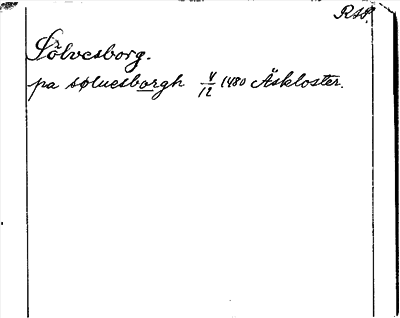 RAP.
Sölvesborg.
pa søluesborgh 4/12 1480 Äskloster.